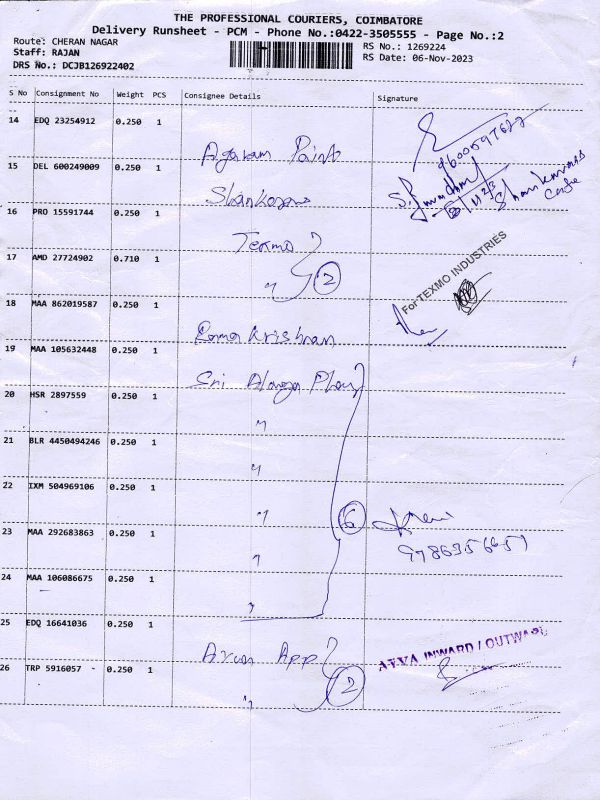 THE PROFESSIONAL COURIERS, COIMBATORE
Delivery Runsheet - PCM - Phone No.:0422-3505555 - Page No.:2
Route: CHERAN NAGAR
RS No.: 1269224
Staff: RAJAN
RS Date: 06-Nov-2023
DRS No.: DCJB126922402
S No Consignment No Weight PCS Consignee Details Signature
14 EDQ 23254912 0.250 1
Agaram Paint
15 DEL 600249009 0.250 1
Shankarans
16 PRO 15591744 0.250 1
Texmo
17 AMD 27724902 0.710 1
" 2
For TEXMO INDUSTRIES
18 MAA 862019587 0.250 1
Rama Krishnan
19 MAA 105632448 0.250 1
Sri
20 HSR 2897559 0.250 1
"
21 BLR 4450494246 0.250 1
"
22 IXM 504969106 0.250 1
" 6
23 MAA 292683863 0.250 1
"
24 MAA 106086675 0.250 1
"
25 EDQ 16641036 0.250 1
Arun App
INWARD / OUTWARD
26 TRP 5916057 0.250 1
" 2